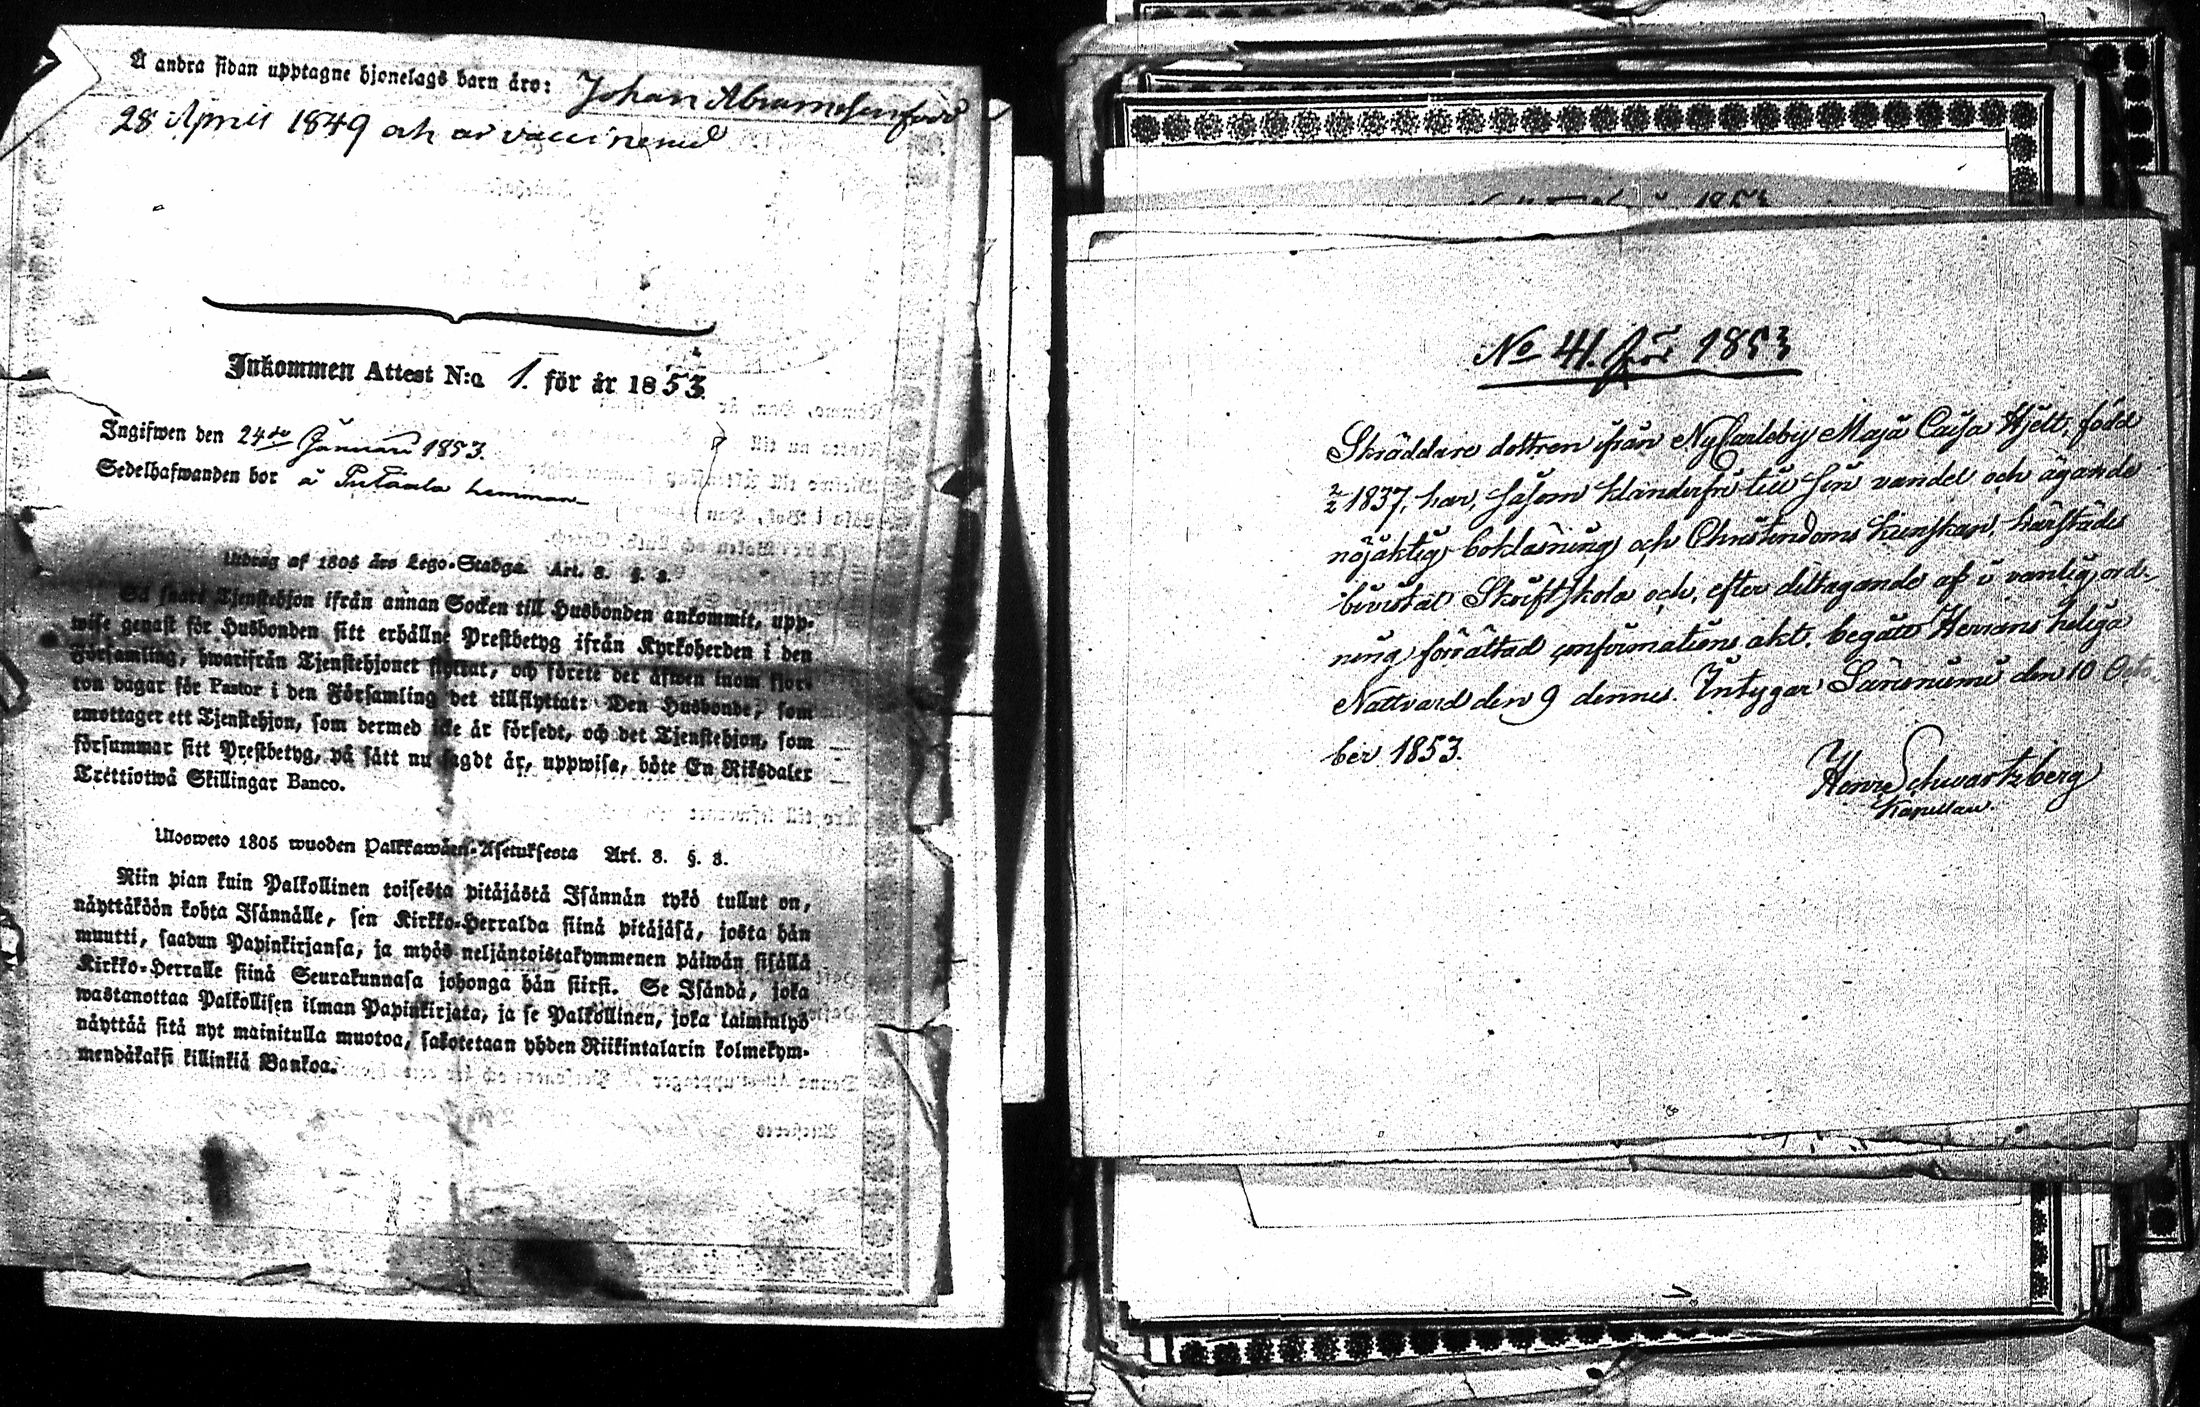 Å andra sidan upptagne hjonelags barn äro: Johan Abramsson född
28 April 1849 och är vaccinerad
Inkommen Attest N:o 1. för år 1853.
Ingifwen den 24de Januari 1853.
Sedelhafwanden bor å hemman
Utdrag af 1805 års Lego-Stadga. Art. 3. §. 3.
Så snart Tjenstehjon ifrån annan Socken till Husbonden ankommit, upp-
wise genast för Husbonden sitt erhållne Prestbetyg ifrån Kyrkoherden i den
Församling, hwarifrån Tjenstehjonet flyttat, och förete det äfwen inom fjor-
ton dagar för Pastor i den Församling det tillflyttat: Den Husbonde, som
emottager ett Tjenstehjon, som dermed icke är försedt, och det Tjenstehjon, som
försummar sitt Prestbetyg, på sätt nu sagdt är, uppwisa, böte En Riksdaler
Trettiotwå Skillingar Banco.
Ulosweto 1805 wuoden Palkkawäen-Asetuksesta Art. 3. §. 3.
Niin pian kuin Palkollinen toisesta pitäjästä Isännän tykö tullut on,
näyttäköön kohta Isännälle, sen Kirkko-Herralda siinä pitäjäsä, josta hän
muutti, saadun Papinkirjansa, ja myös neljäntoistakymmenen päiwän sisällä
Kirkko-Herralle siinä Seurakunnasa johonga hän siirsi. Se Isändä, joka
wastanottaa Palkollisen ilman Papinkirjata, ja se Palkollinen, joka laiminlyö
näyttää sitä nyt mainitulla muotoa, sakotetaan yhden Riikintalarin kolmekym-
mendäkaksi killinkiä Bankoa.
1853
No 41. för 1853
Skräddare dottren ifrån NyCarleby Maja Caisa Hjelt, född
2/2 1837, har, såsom klanderfri till sin vandel och ägande
nöjaktig bokläsning och Christendoms kunskap, härstädes
bivistat Skriftskola och, efter deltagande af i vanlig ord-
ning förrättad confirmations akt, begått Herrans heliga
Nattvard den 9 dennes. Intygar den 10 Octo-
ber 1853.
Henr Schwartzberg
Kapellan.